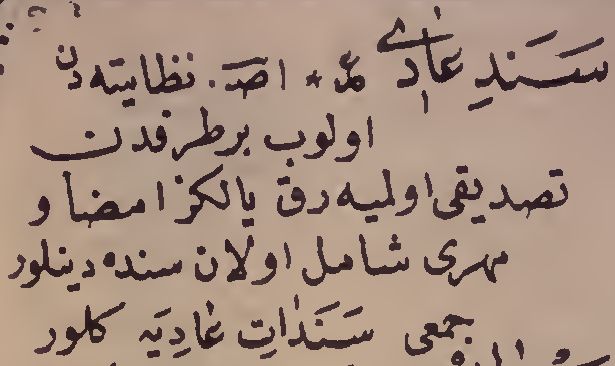 سَنَدِ عَادِی مذ * اصـ . نظامیته دن
اولوب بر طرفدن
تصدیقی اولمیه رق یالکز امضا و
مهری شامل اولان سنده دینلور
جمعی سَنَدَاتِ عَادِیَه کلور